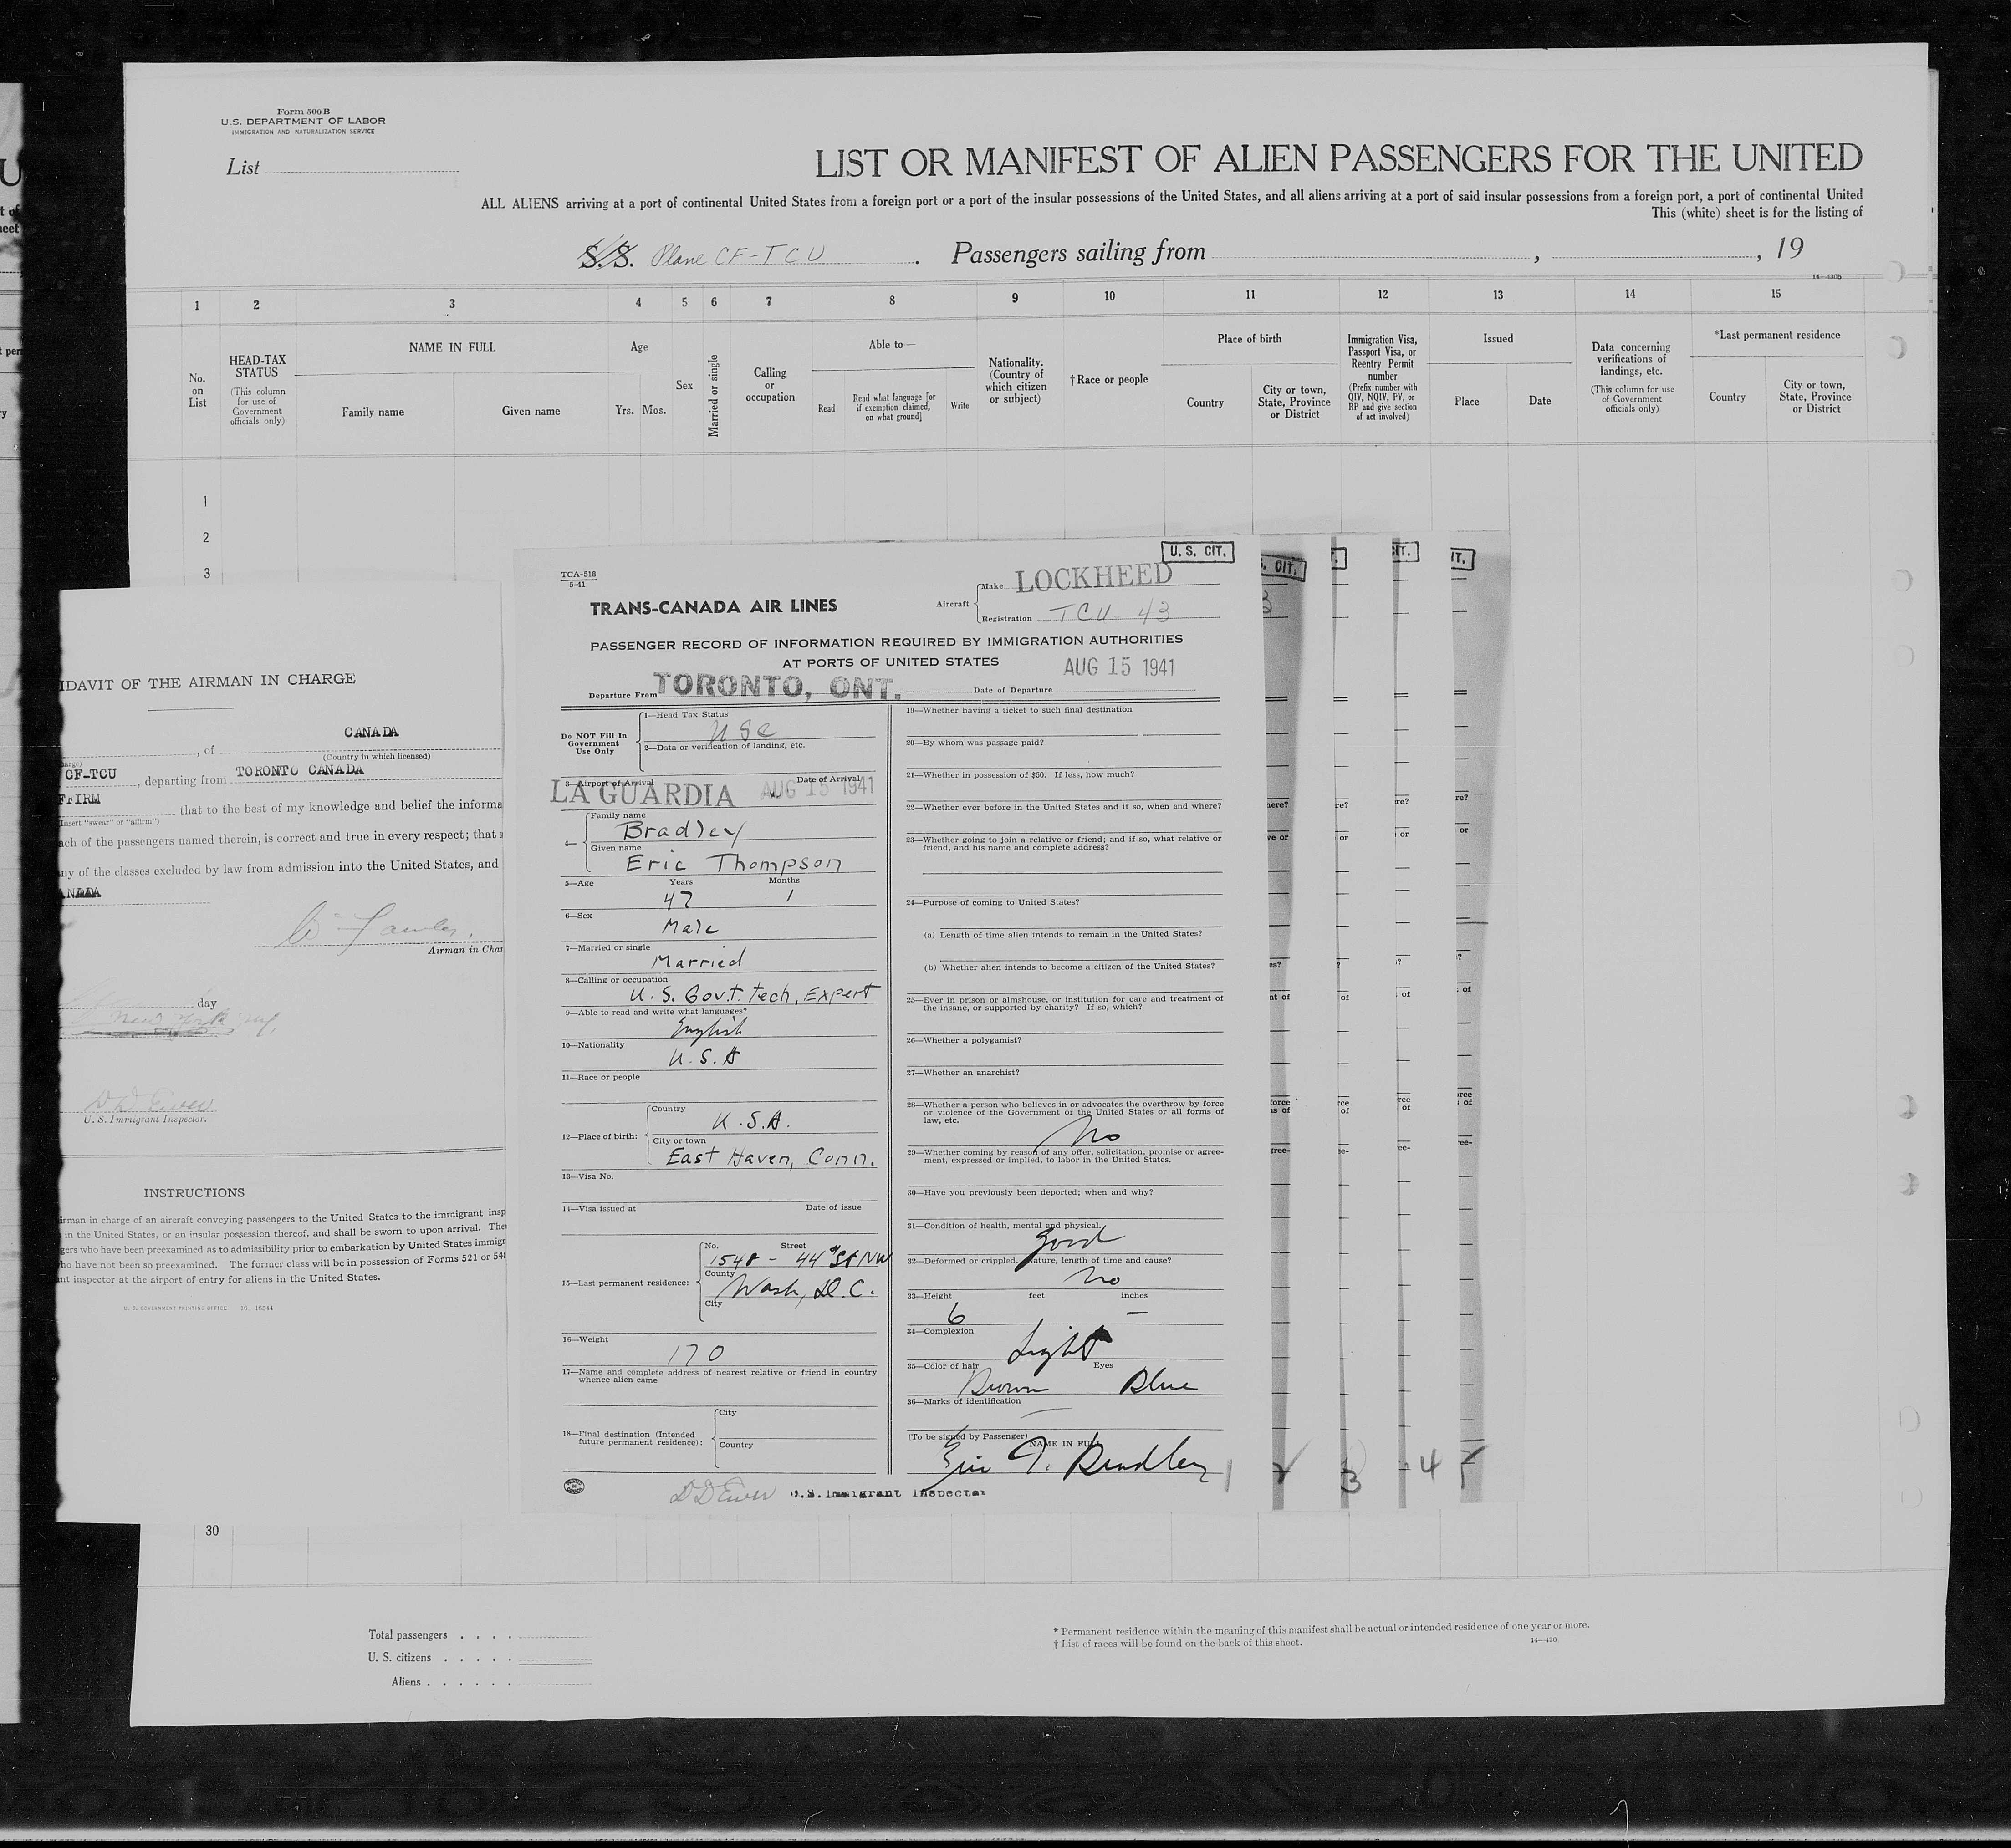 Form 500 B
U.S. DEPARTMENT OF LABOR
IMMIGRATION AND NATURALIZATION SERVICE
List
LIST OR MANIFEST OF ALIEN PASSENGERS FOR THE UNITED
ALL ALIENS arriving at a port of continental United States from a foreign port or a port of the insular possessions of the United States, and all aliens arriving at a port of said insular possessions from a foreign port, a port of continental United
This (white) sheet is for the listing of
S.S. Plane CF-TCU . Passengers sailing from , , 19
1 2 3 4 5 6 7 8 9 10 11 12 13 14 15
No. on List
HEAD-TAX STATUS
(This column for use of Government officials only)
NAME IN FULL
Family name
Given name
Age
Yrs. Mos.
Sex
Married or single
Calling or occupation
Able to—
Read
Read what language [or if exemption claimed, on what ground]
Write
Nationality. (Country of which citizen or subject)
†Race or people
Place of birth
Country
City or town, State, Province or District
Immigration Visa, Passport Visa, or Reentry Permit number
(Prefix number with QIV, NQIV, PV, or RP and give section of act involved)
Issued
Place
Date
Data concerning verifications of landings, etc.
(This column for use of Government officials only)
*Last permanent residence
Country
City or town, State, Province or District
1
2
3
IDAVIT OF THE AIRMAN IN CHARGE
, of CANADA
(Country in which licensed)
CF-TCU , departing from TORONTO CANADA
FFIRM that to the best of my knowledge and belief the informa
(Insert "swear" or "affirm")
ach of the passengers named therein, is correct and true in every respect; that
ny of the classes excluded by law from admission into the United States, and
Airman in Char
day
New York NY,
D D Ewer
U. S. Immigrant Inspector.
INSTRUCTIONS
irman in charge of an aircraft conveying passengers to the United States to the immigrant insp
in the United States, or an insular possession thereof, and shall be sworn to upon arrival. The
gers who have been preexamined as to admissibility prior to embarkation by United States immigr
ho have not been so preexamined. The former class will be in possession of Forms 521 or 548
nt inspector at the airport of entry for aliens in the United States.
U. S. GOVERNMENT PRINTING OFFICE 16—16544
U. S. CIT.
TCA-518
5-41
TRANS-CANADA AIR LINES
Aircraft
Make LOCKHEED
Registration TCU 43
PASSENGER RECORD OF INFORMATION REQUIRED BY IMMIGRATION AUTHORITIES
AT PORTS OF UNITED STATES
Departure From TORONTO, ONT. Date of Departure AUG 15 1941
Do NOT Fill In Government Use Only
1—Head Tax Status
USC
2—Data or verification of landing, etc.
3—Airport of Arrival Date of Arrival
LA GUARDIA AUG 15 1941
4—
Family name
Bradley
Given name
Eric Thompson
5—Age Years Months
47 1
6—Sex
Male
7—Married or single
Married
8—Calling or occupation
U. S. Gov.t. Tech, Expert
9—Able to read and write what languages?
English
10—Nationality
U. S. A
11—Race or people
12—Place of birth:
Country
U. S. A.
City or town
East Haven, Conn.
13—Visa No.
14—Visa issued at Date of issue
15—Last permanent residence:
No. Street
1548 - 44th St NW
County
Wash, D.C.
City
16—Weight
170
17—Name and complete address of nearest relative or friend in country whence alien came
18—Final destination (Intended future permanent residence):
City
Country
19—Whether having a ticket to such final destination
20—By whom was passage paid?
21—Whether in possession of $50. If less, how much?
22—Whether ever before in the United States and if so, when and where?
23—Whether going to join a relative or friend; and if so, what relative or friend, and his name and complete address?
24—Purpose of coming to United States?
(a) Length of time alien intends to remain in the United States?
(b) Whether alien intends to become a citizen of the United States?
25—Ever in prison or almshouse, or institution for care and treatment of the insane, or supported by charity? If so, which?
26—Whether a polygamist?
27—Whether an anarchist?
28—Whether a person who believes in or advocates the overthrow by force or violence of the Government of the United States or all forms of law, etc.
No
29—Whether coming by reason of any offer, solicitation, promise or agreement, expressed or implied, to labor in the United States.
30—Have you previously been deported; when and why?
31—Condition of health, mental and physical.
Good
32—Deformed or crippled. Nature, length of time and cause?
No
33—Height feet inches
6 —
34—Complexion
Light
35—Color of hair Eyes
Brown Blue
36—Marks of identification
—
(To be signed by Passenger) NAME IN FULL
Eric T. Bradley
D D Ewer U.S. Immigrant Inspector
1 2 3 4 5
30
Total passengers . . . .
U. S. citizens . . . . .
Aliens . . . . . .
* Permanent residence within the meaning of this manifest shall be actual or intended residence of one year or more.
† List of races will be found on the back of this sheet.
14—430